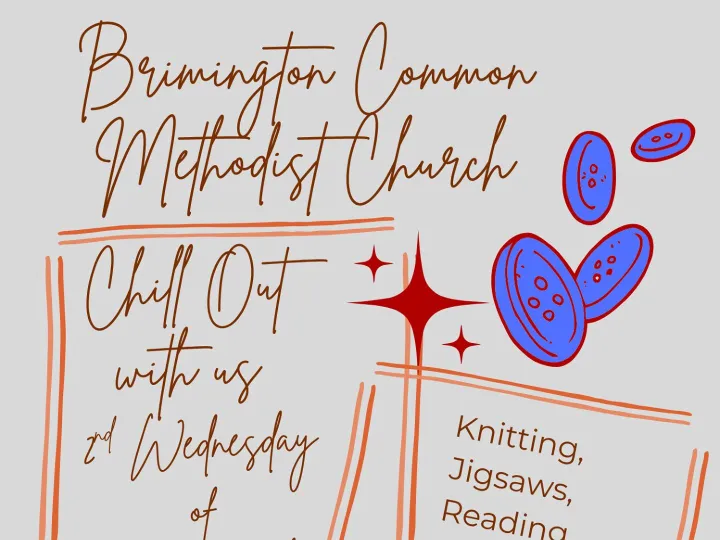 Brimington Common
Methodist Church
Chill Out
with us
2nd Wednesday
of
Knitting,
Jigsaws,
Reading